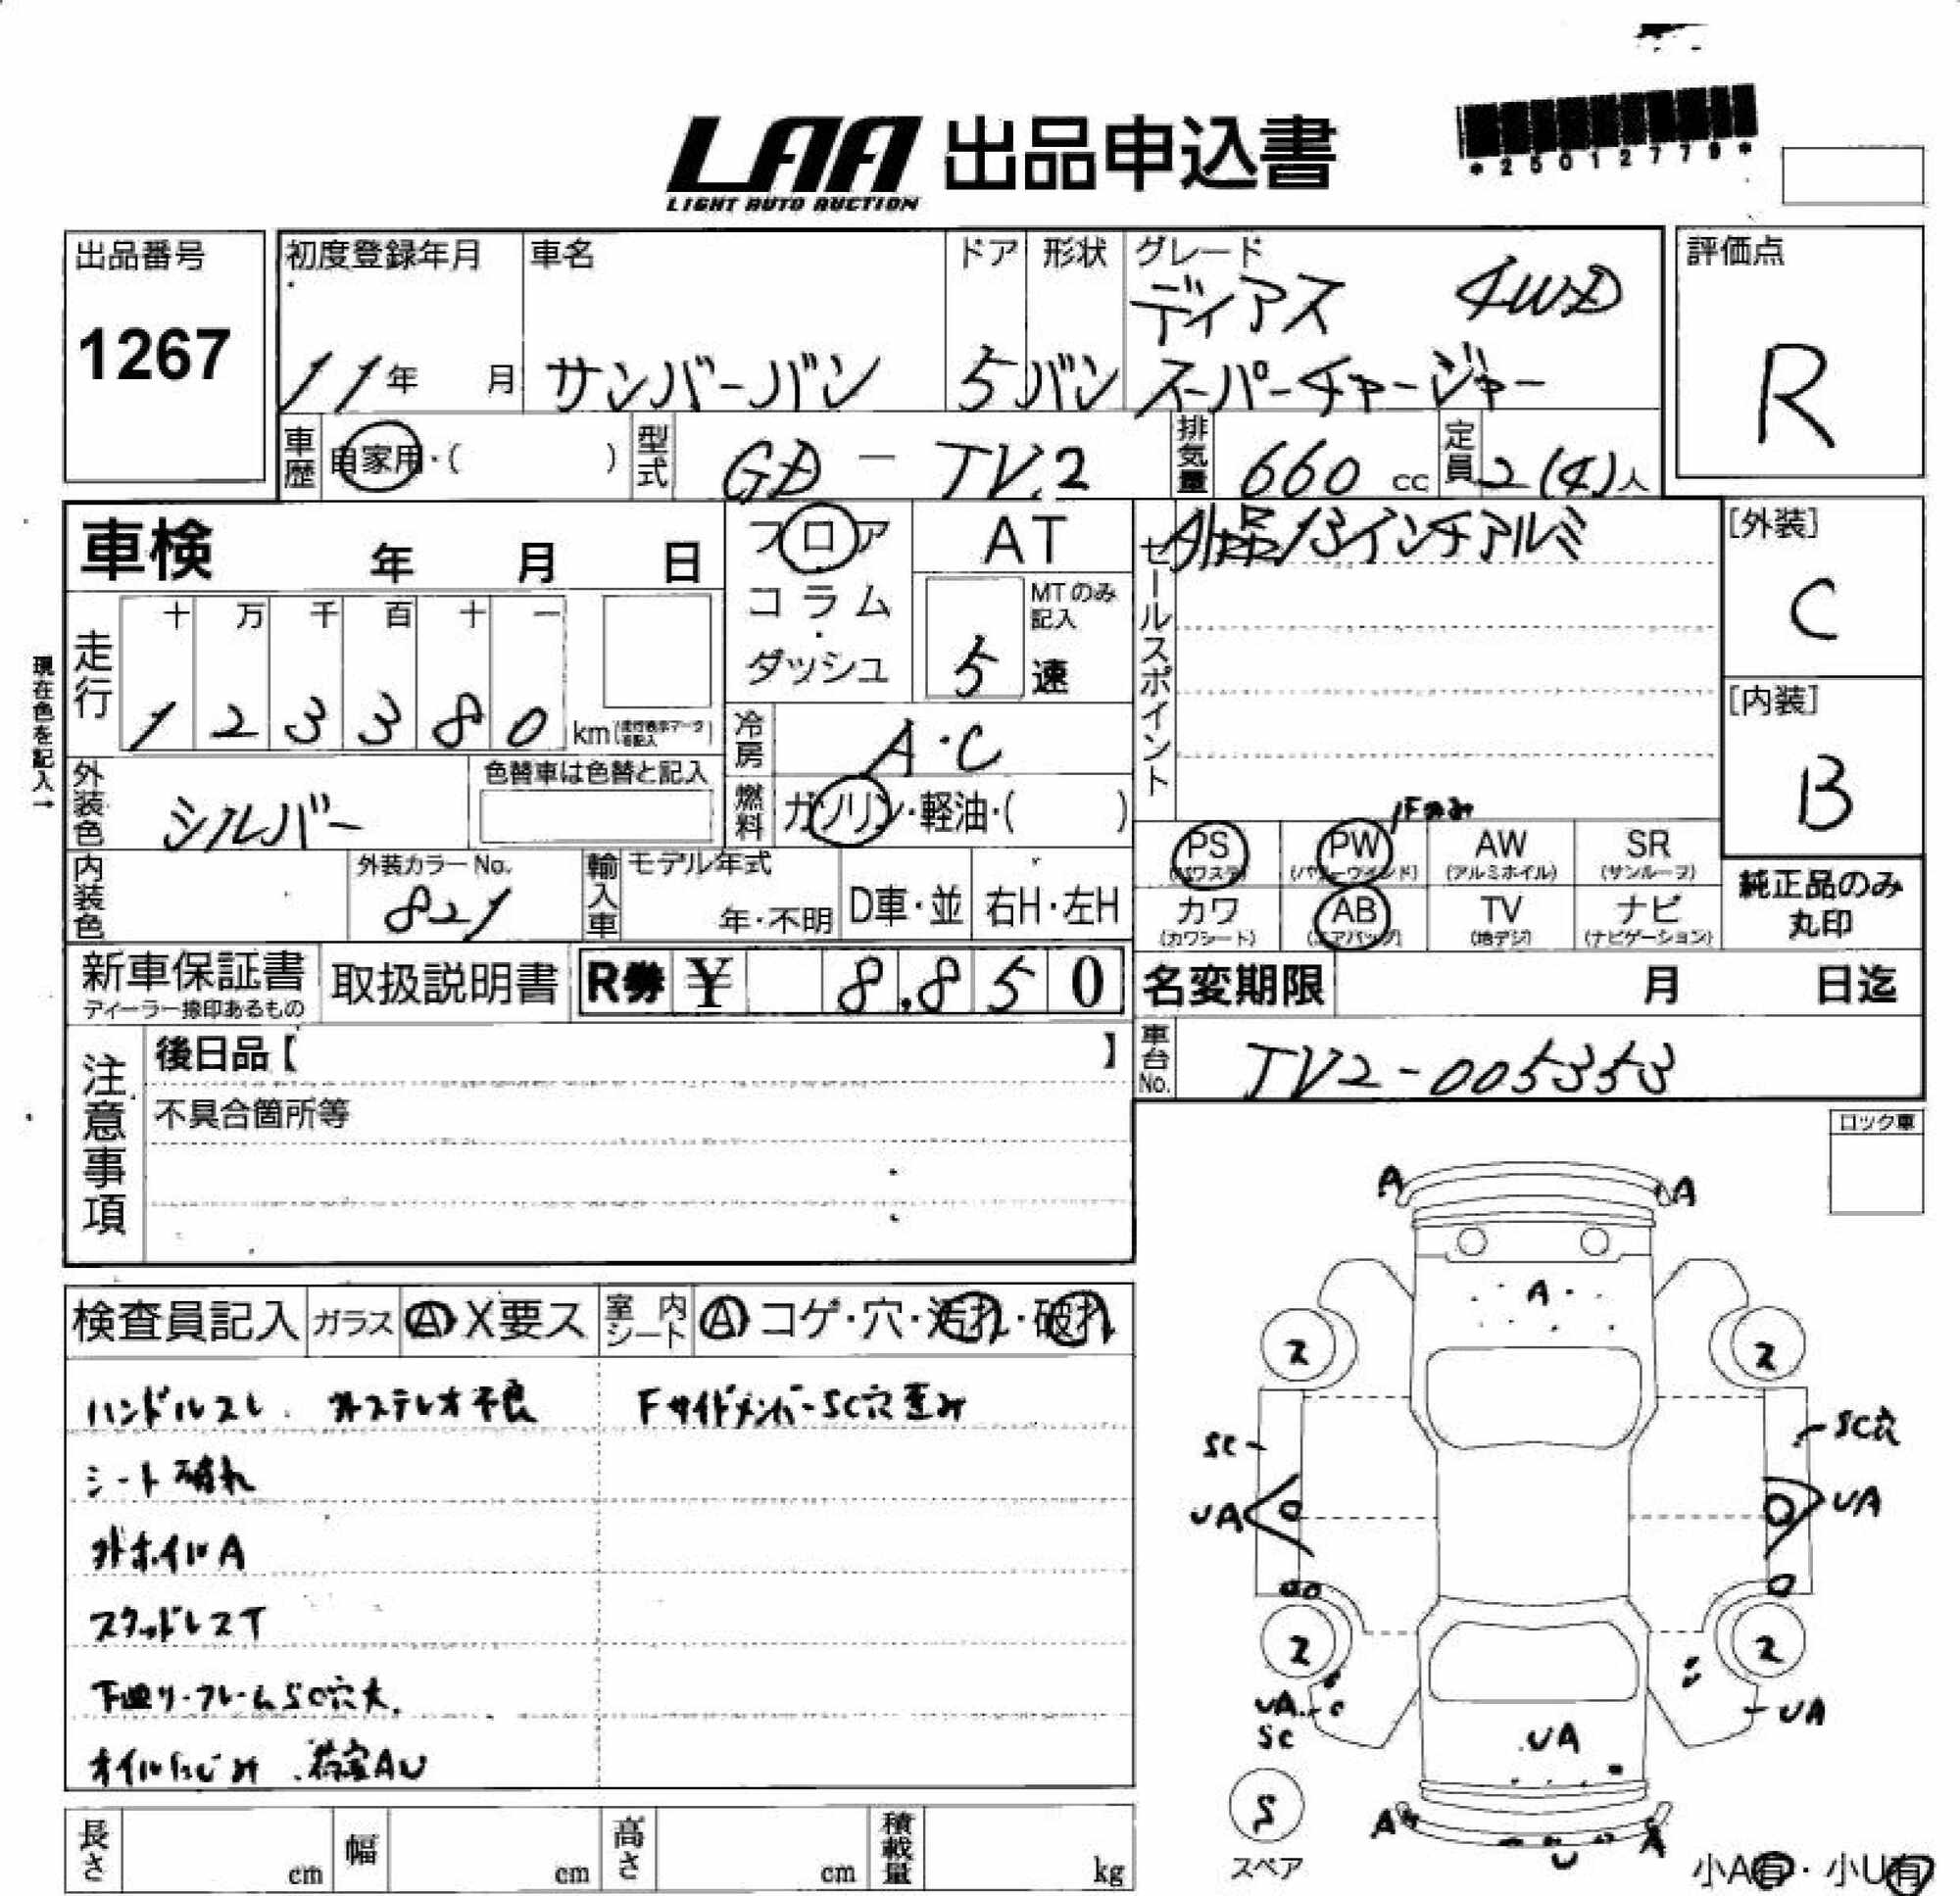 LAA 出品申込書
LIGHT AUTO AUCTION
*25012779*
出品番号
1267
初度登録年月
11年 月
車名
サンバーバン
ドア
5
形状
バン
グレード
ディアス 4WD
スーパーチャージャー
評価点
R
車歴
自家用・( )
型式
GD - TV2
排気量
660 cc
定員
2(4)人
車検 年 月 日
フロア
コラム
・
ダッシュ
AT
MTのみ
記入
5 速
セールスポイント
外品13インチアルミ
[外装]
C
[内装]
B
現在色を記入→
走行
十 万 千 百 十 一
1 2 3 3 8 0 km
冷房
A・C
燃料
ガソリン・軽油・( )
外装色
シルバー
色替車は色替と記入
内装色
外装カラーNo.
821
輸入車
モデル年式
年・不明
D車・並
右H・左H
Fのみ
PS
(パワステ)
PW
(パワーウインド)
AW
(アルミホイル)
SR
(サンルーフ)
カワ
(カワシート)
AB
(エアバッグ)
TV
(地デジ)
ナビ
(ナビゲーション)
純正品のみ
丸印
新車保証書
ディーラー捺印あるもの
取扱説明書
R券 ¥ 8,850
名変期限 月 日迄
車台No.
TV2-005353
注意事項
後日品【 】
不具合箇所等
ロック車
検査員記入
ガラス
A X要ス
室内シート
A コゲ・穴・汚れ・破れ
ハンドルスレ. 外ステレオ不良
Fサイドメンバーsc穴歪み
シート破れ
外ホイルA
スタッドレスT
下廻り・フレームSC穴大.
オイルにじみ .荷室AU
A A
A
2 2
SC SC穴
UA UA
2 2
UA
SC
UA
UA
S
スペア
A A
U
小A有・小U有
長さ cm
幅 cm
高さ cm
積載量 kg